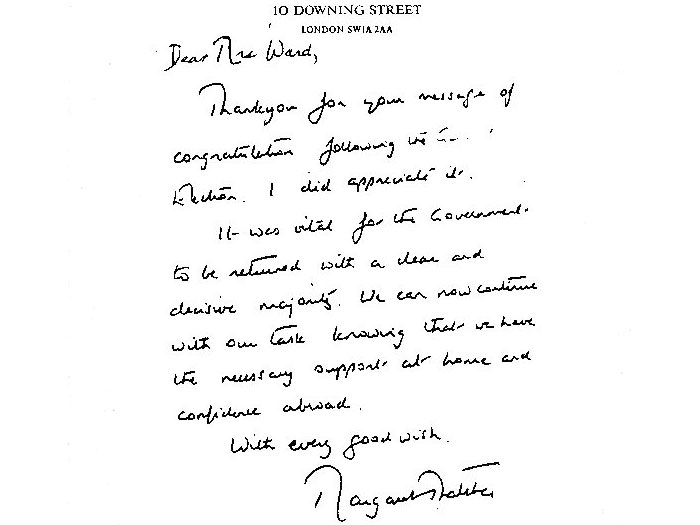 10 DOWNING STREET
LONDON SW1A 2AA
Dear Mrs Ward,
Thankyou for your message of
congratulation following the
Election. I did appreciate it.
It was vital for the Government
to be returned with a clear and
decisive majority. We can now continue
with our task knowing that we have
the necessary support at home and
confidence abroad.
With every good wish.
Margaret Thatcher